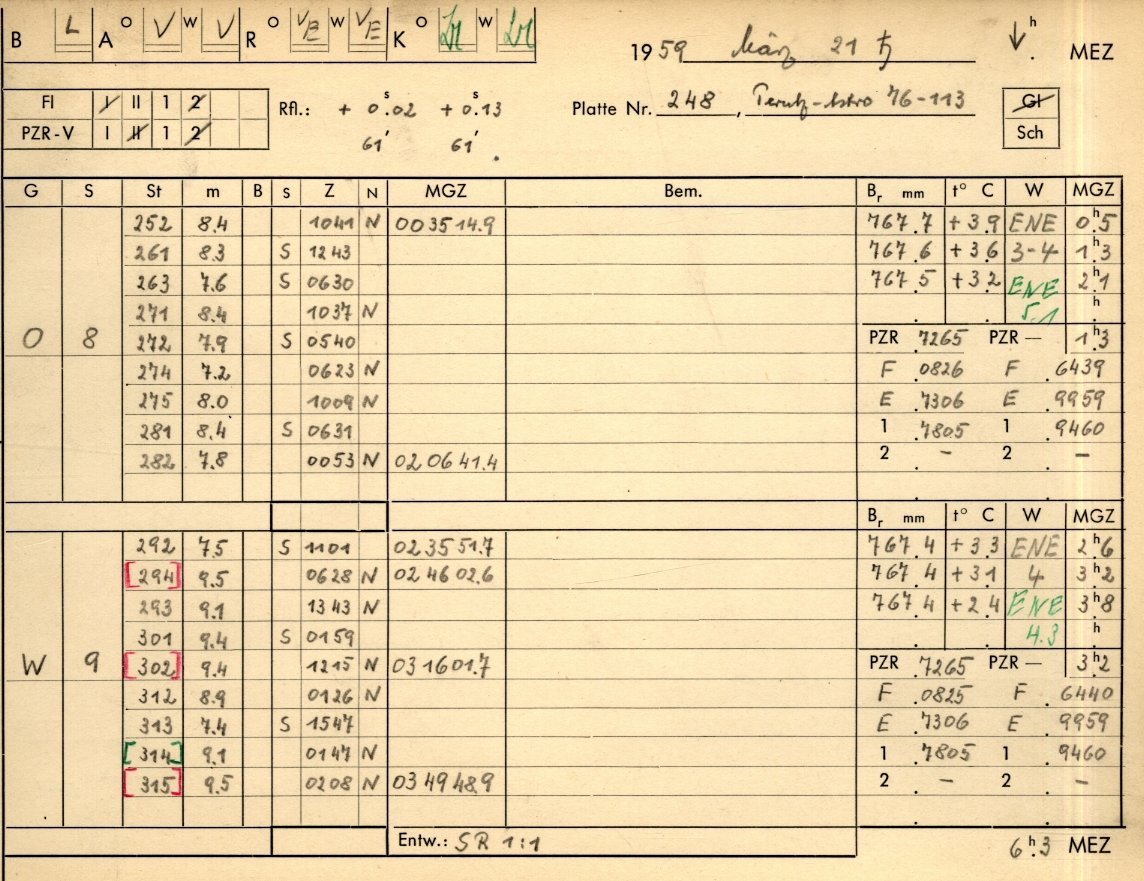 B L A O V W V R O VE W VE K O W
h
19 59 März 21 ♄ . MEZ
FI I II 1 2 Rfl.: + 0ˢ.02 + 0ˢ.13 Platte Nr. 248 , Perutz-Astro 76-113 GI
PZR-V I II 1 2 61′ 61′ . Sch
G S St m B S Z N MGZ Bem. Bᵣ mm t° C W MGZ
252 8.4 1041 N 00 35 14.9 767.7 +3.9 ENE 0ʰ.5
261 8.3 S 1243 767.6 +3.6 3-4 1ʰ.3
263 7.6 S 0630 767.5 +3.2 ENE 2ʰ.1
271 8.4 1037 N . . 5.1 ʰ.
O 8 272 7.9 S 0540 PZR .7265 PZR — 1ʰ.3
274 7.2 0623 N F .0826 F .6439
275 8.0 1009 N E .7306 E .9959
281 8.4 S 0631 1 .7805 1 .9460
282 7.8 0053 N 02 06 41.4 2 . - 2 . -
Bᵣ mm t° C W MGZ
292 7.5 S 1101 02 35 51.7 767.4 +3.3 ENE 2ʰ.6
[294] 9.5 0628 N 02 46 02.6 767.4 +3.1 4 3ʰ.2
293 9.1 1343 N 767.4 +2.4 ENE 3ʰ.8
301 9.4 S 0159 . . 4.3 ʰ.
W 9 [302] 9.4 1215 N 03 16 01.7 PZR .7265 PZR — 3ʰ.2
312 8.9 0126 N F .0825 F .6440
313 7.4 S 1547 E .7306 E .9959
[314] 9.1 0147 N 1 .7805 1 .9460
[315] 9.5 0208 N 03 49 48.9 2 . - 2 . -
Entw.: SR 1:1 6ʰ.3 MEZ